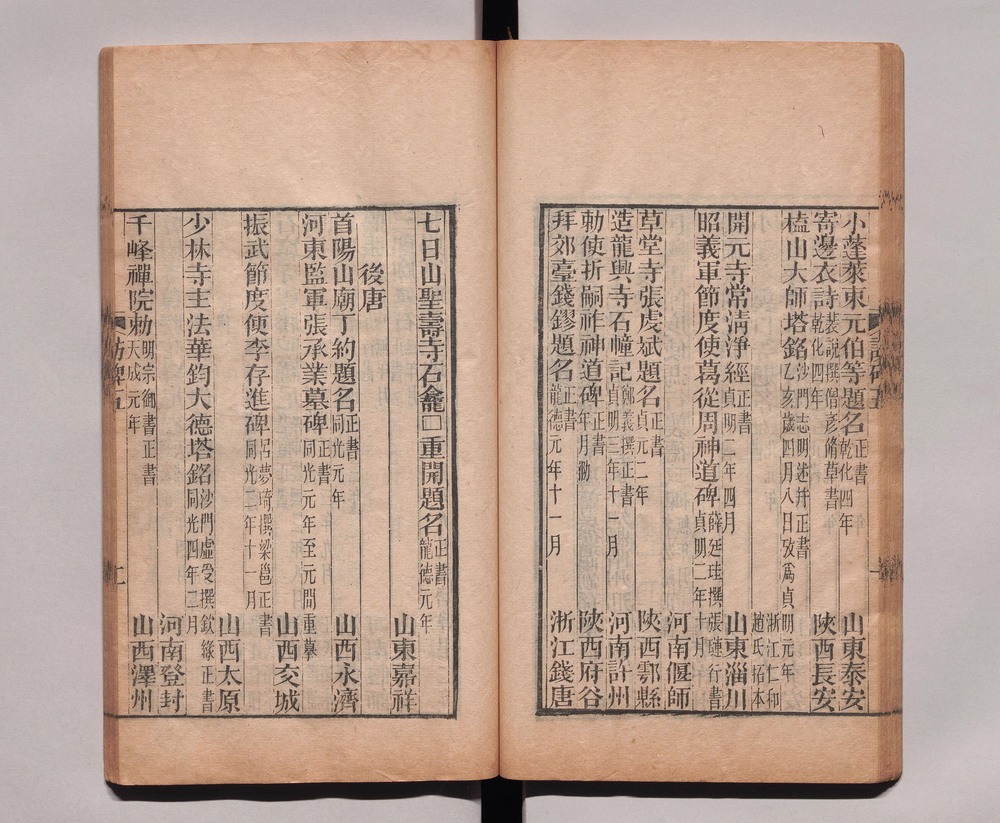 小蓬萊東元伯等題名 正書 乾化四年 山東泰安
寄邊衣詩 裴說撰僧彥脩草書 乾化四年 陝西長安
榼山大師塔銘 沙門志明述幷正書 乙亥歲四月八日攷爲貞明元年 浙江仁和趙氏拓本
開元寺常淸淨經 正書 貞明二年四月 山東淄川
昭義軍節度使葛從周神道碑 薛廷珪撰張璉行書 貞明二年十月 河南偃師
草堂寺張虔斌題名 正書 貞元二年 陝西鄠縣
造龍興寺石幢記 鄭義撰正書 貞明三年十一月 河南許州
勅使折嗣祚神道碑 正書 年月泐 陝西府谷
拜郊臺錢鏐題名 正書 龍德元年十一月 浙江錢唐
七日山聖壽寺石龕□重開題名 正書 龍德元年 山東嘉祥
後唐
首陽山廟丁約題名 正書 同光元年 山西永濟
河東監軍張承業墓碑 正書 同光元年至元閒重摹 山西交城
振武節度使李存進碑 呂夢琦撰梁邕正書 同光二年十一月 山西太原
少林寺主法華鈞大德塔銘 沙門虛受撰欽緣正書 同光四年二月 河南登封
千峰禪院勅 明宗御書正書 天成元年 山西澤州
訪碑五